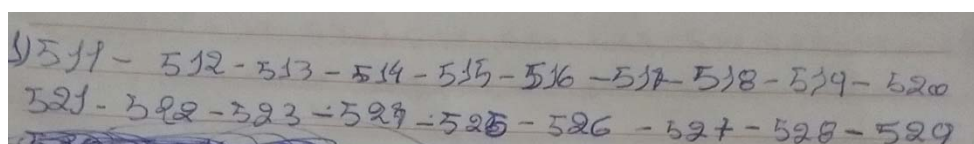 1) 511 - 512 - 513 - 514 - 515 - 516 - 517 - 518 - 519 - 520
521 - 522 - 523 - 524 - 525 - 526 - 527 - 528 - 529